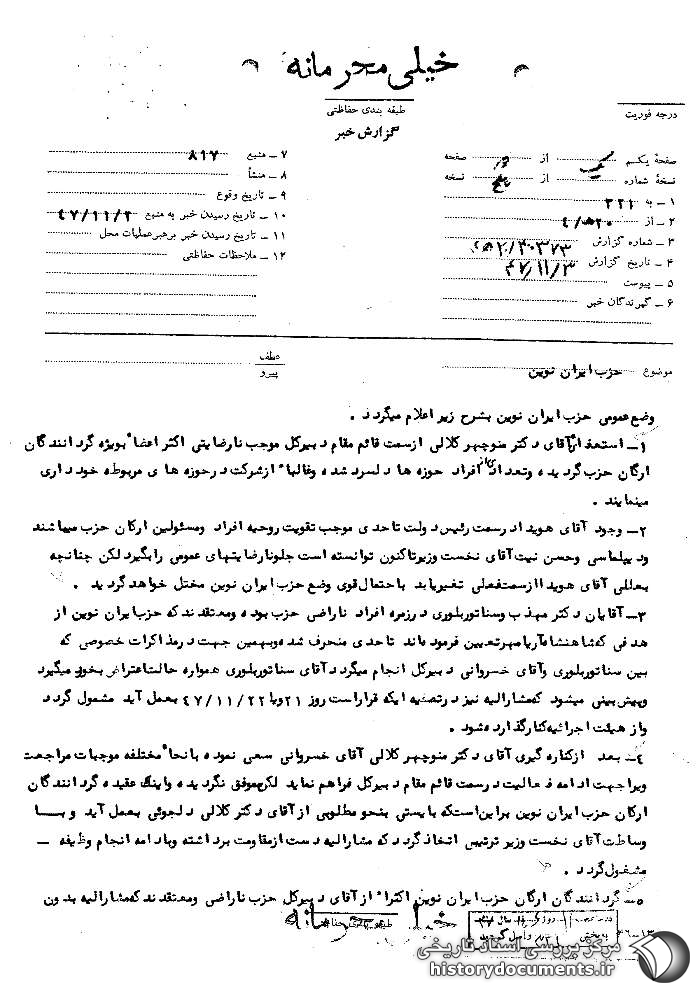 خیلی محرمانه
طبقه بندی حفاظتی
گزارش خبر
درجه فوریت
صفحهٔ یکم از صفحه
نسخهٔ شماره از پنج نسخه
۱ – به ۳۲۱
۲ – از ۲۰ه۴
۳ – شماره گزارش
۴ – تاریخ گزارش ۴۷/۱۱/۳
۵ – پیوست
۶ – گیرندگان خبر
۷ – منبع ۸۱۷
۸ – منشأ
۹ – تاریخ وقوع
۱۰ – تاریخ رسیدن خبر به منبع ۴۷/۱۱/۲
۱۱ – تاریخ رسیدن خبر برهبر عملیات محل
۱۲ – ملاحظات حفاظتی
موضوع حزب ایران نوین
عطف
پیرو
وضع عمومی حزب ایران نوین بشرح زیر اعلام میگردد .
۱– استعفای آقای دکتر منوچهر کلالی ازسمت قائم مقام دبیرکل موجب نارضایتی اکثر اعضاء بویژه گردانندگان
ارکان حزب گردیده وتعدادی از افراد حوزه ها دلسرد شده وغالباً ازشرکت درحوزه های مربوطه خود داری
مینمایند .
۲– وجود آقای هویدا درسمت رئیس دولت تاحدی موجب تقویت روحیه افراد ومسئولین ارکان حزب میباشد
ودیپلماسی وحسن نیت آقای نخست وزیر تاکنون توانسته است جلونارضایتیهای عمومی را بگیرد لکن چنانچه
بعللی آقای هویدا ازسمت فعلی تغیر یابد باحتمال قوی وضع حزب ایران نوین مختل خواهد گردید .
۳– آقایان دکتر مهذب وسناتور بلوری درزمره افراد ناراضی حزب بوده ومعتقدند که حزب ایران نوین از
هدفی که شاهنشاه آریامهر تعیین فرموده اند تاحدی منحرف شده وبهمین جهت درمذاکرات خصوصی که
بین سناتور بلوری وآقای خسروانی دبیرکل انجام میگردد آقای سناتور بلوری همواره حالت اعتراض بخود میگیرد
وپیش بینی میشود که مشارالیه نیز درتصفیه ایکه قراراست روز ۲۱ ویا ۴۷/۱۱/۲۲ بعمل آید مشمول گردد
واز هیئت اجرائیه کنار گذارده شود .
۴– بعد ازکناره گیری آقای دکتر منوچهر کلالی آقای خسروانی سعی نموده بانحاء مختلفه موجبات مراجعت
ویرا جهت ادامه فعالیت درسمت قائم مقام دبیرکل فراهم نماید لکن موفق نگردیده واینک عقیده گردانندگان
ارکان حزب ایران نوین براین است که بایستی بنحو مطلوبی از آقای دکتر کلالی دلجوئی بعمل آید وبا
وساطت آقای نخست وزیر ترتیبی اتخاذ گردد که مشارالیه دست ازمقاومت برداشته وبادامه انجام وظیفه –
مشغول گردد .
۵– گردانندگان ارکان حزب ایران نوین اکثراً از آقای دبیرکل حزب ناراضی ومعتقدند که مشارالیه بدون
خیلی محرمانه
مرکز بررسی اسناد تاریخی
historydocuments.ir